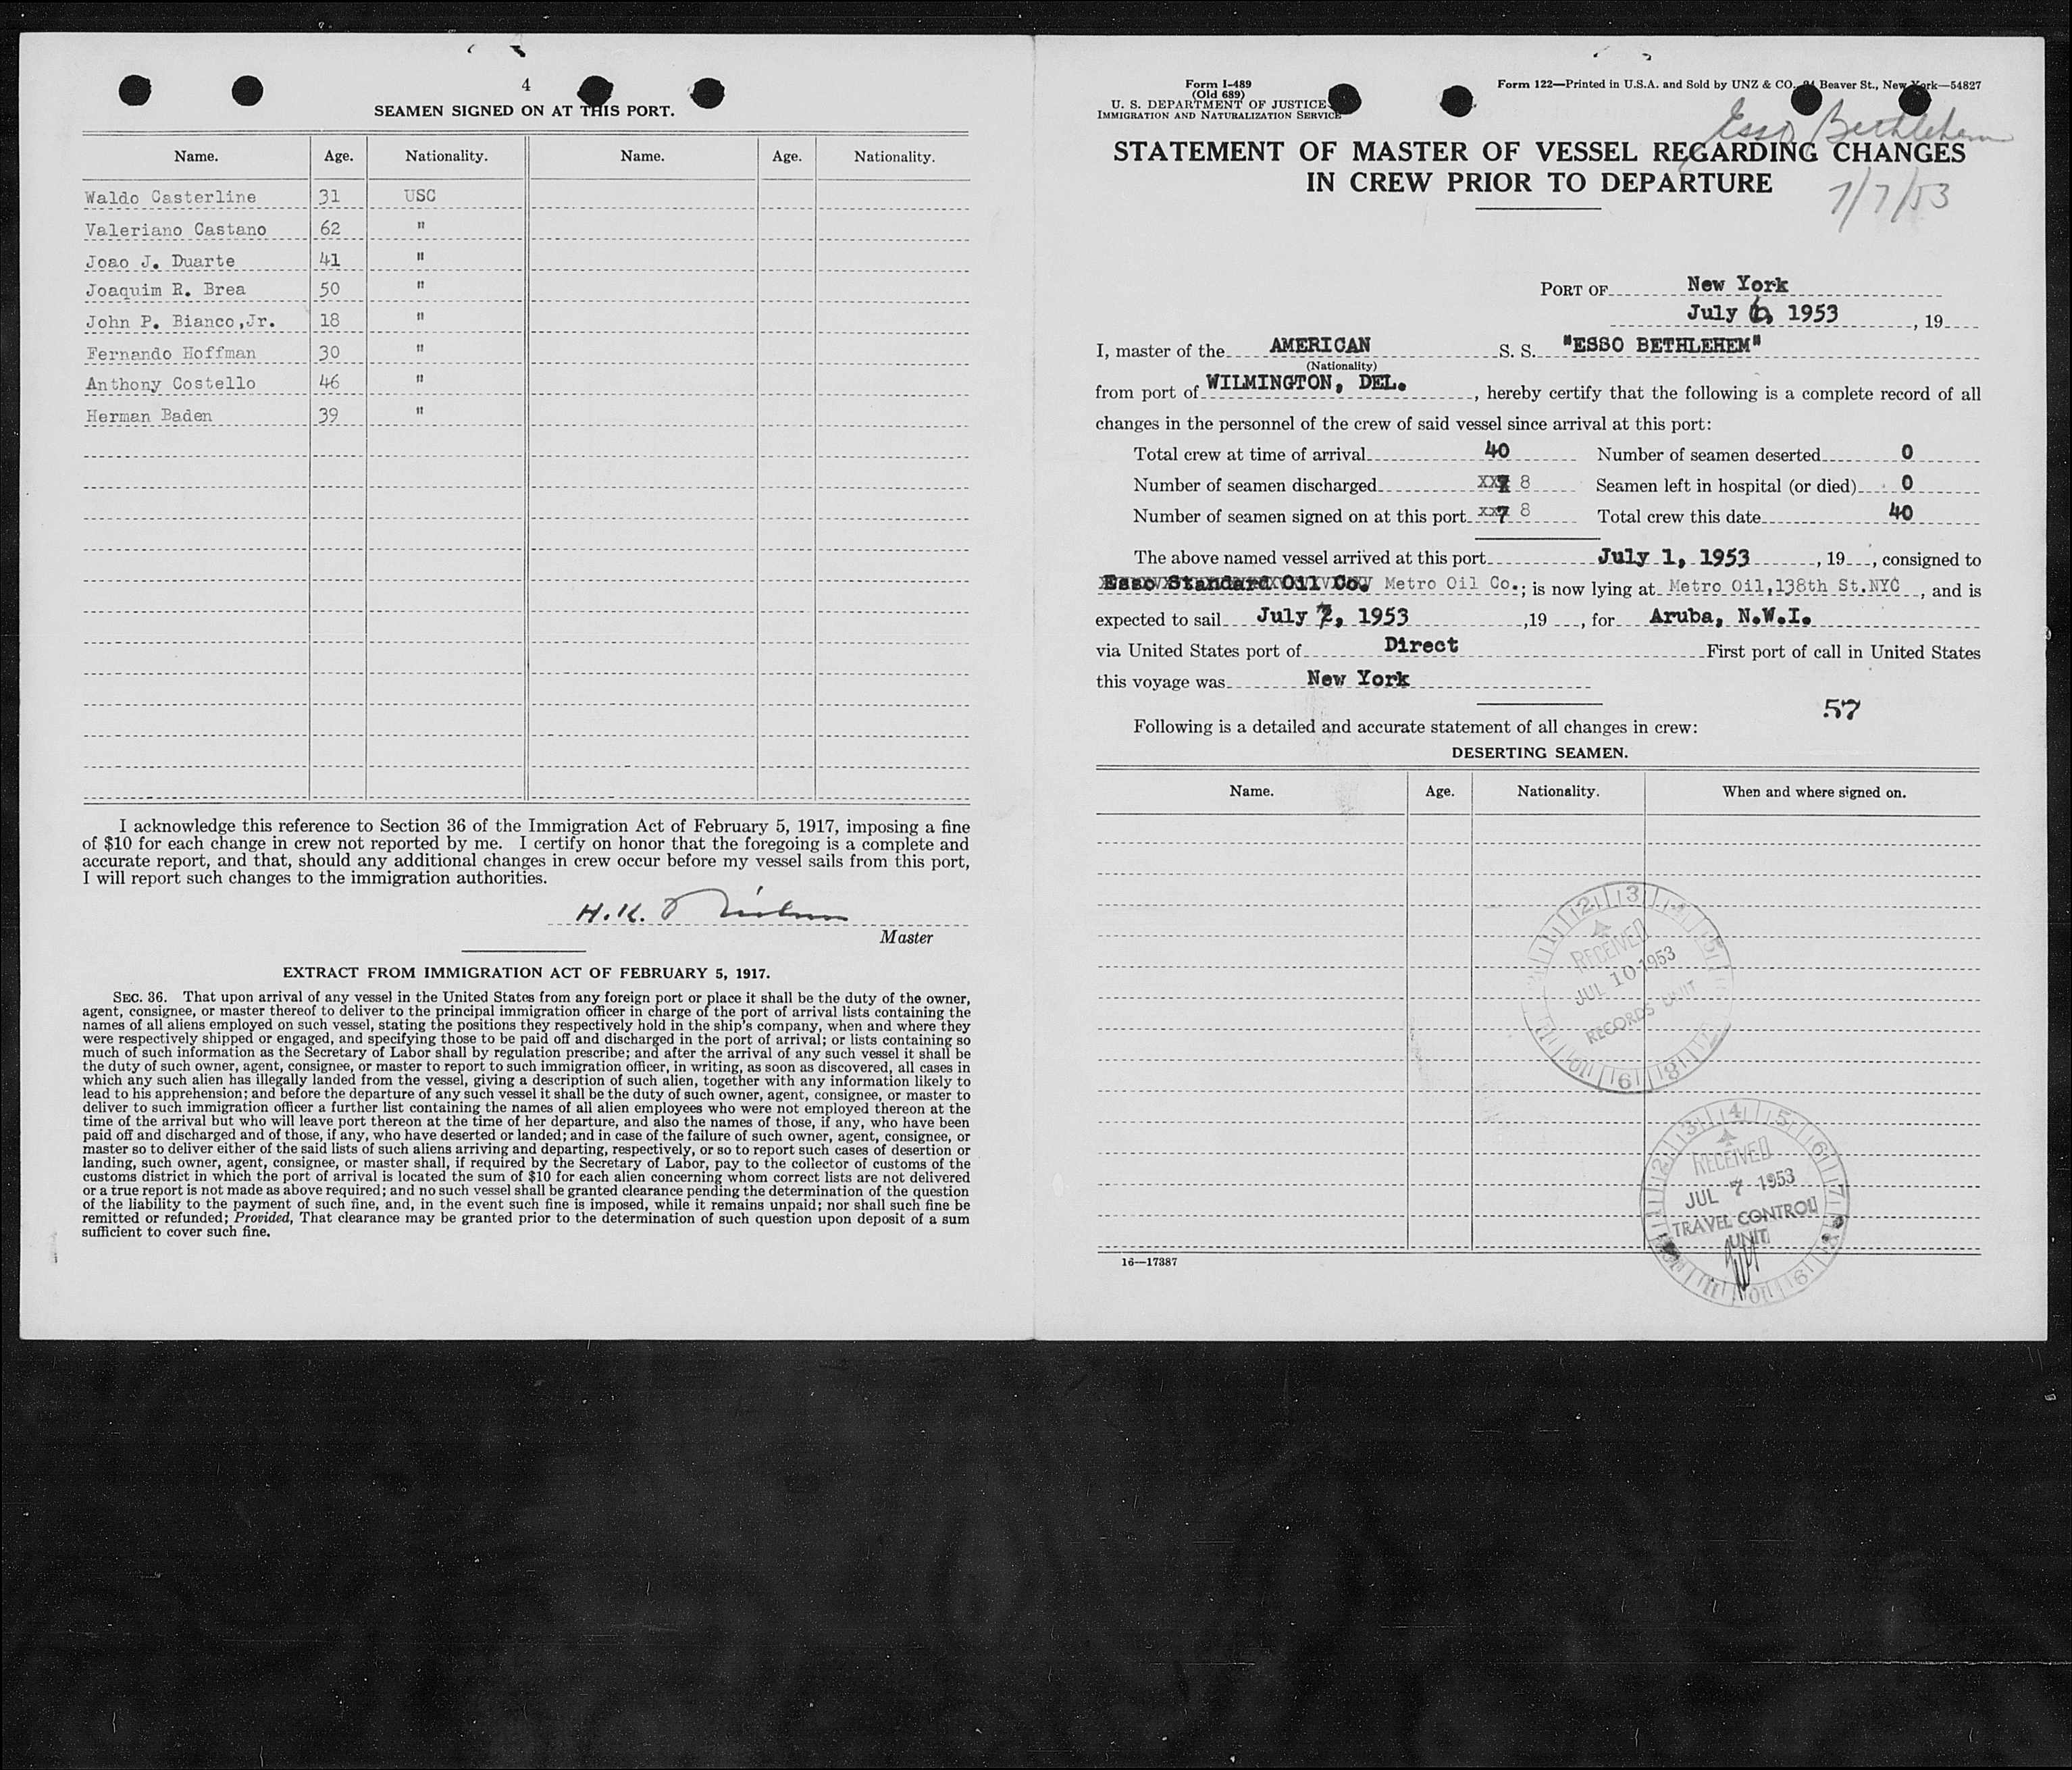 4
SEAMEN SIGNED ON AT THIS PORT.
Name. Age. Nationality. Name. Age. Nationality.
Waldo Casterline 31 USC
Valeriano Castano 62 "
Joao J. Duarte 41 "
Joaquim R. Brea 50 "
John P. Bianco,Jr. 18 "
Fernando Hoffman 30 "
Anthony Costello 46 "
Herman Baden 39 "
I acknowledge this reference to Section 36 of the Immigration Act of February 5, 1917, imposing a fine
of $10 for each change in crew not reported by me. I certify on honor that the foregoing is a complete and
accurate report, and that, should any additional changes in crew occur before my vessel sails from this port,
I will report such changes to the immigration authorities.
H.K.
Master
EXTRACT FROM IMMIGRATION ACT OF FEBRUARY 5, 1917.
SEC. 36. That upon arrival of any vessel in the United States from any foreign port or place it shall be the duty of the owner,
agent, consignee, or master thereof to deliver to the principal immigration officer in charge of the port of arrival lists containing the
names of all aliens employed on such vessel, stating the positions they respectively hold in the ship's company, when and where they
were respectively shipped or engaged, and specifying those to be paid off and discharged in the port of arrival; or lists containing so
much of such information as the Secretary of Labor shall by regulation prescribe; and after the arrival of any such vessel it shall be
the duty of such owner, agent, consignee, or master to report to such immigration officer, in writing, as soon as discovered, all cases in
which any such alien has illegally landed from the vessel, giving a description of such alien, together with any information likely to
lead to his apprehension; and before the departure of any such vessel it shall be the duty of such owner, agent, consignee, or master to
deliver to such immigration officer a further list containing the names of all alien employees who were not employed thereon at the
time of the arrival but who will leave port thereon at the time of her departure, and also the names of those, if any, who have been
paid off and discharged and of those, if any, who have deserted or landed; and in case of the failure of such owner, agent, consignee, or
master so to deliver either of the said lists of such aliens arriving and departing, respectively, or so to report such cases of desertion or
landing, such owner, agent, consignee, or master shall, if required by the Secretary of Labor, pay to the collector of customs of the
customs district in which the port of arrival is located the sum of $10 for each alien concerning whom correct lists are not delivered
or a true report is not made as above required; and no such vessel shall be granted clearance pending the determination of the question
of the liability to the payment of such fine, and, in the event such fine is imposed, while it remains unpaid; nor shall such fine be
remitted or refunded; Provided, That clearance may be granted prior to the determination of such question upon deposit of a sum
sufficient to cover such fine.
Form I-489
(Old 689)
U. S. DEPARTMENT OF JUSTICE
IMMIGRATION AND NATURALIZATION SERVICE
Form 122—Printed in U.S.A. and Sold by UNZ & CO., Beaver St., New York—54827
Esso Bethlehem
STATEMENT OF MASTER OF VESSEL REGARDING CHANGES
IN CREW PRIOR TO DEPARTURE
7/7/53
PORT OF New York
July 6, 1953, 19
I, master of the AMERICAN S. S. "ESSO BETHLEHEM"
(Nationality)
from port of WILMINGTON, DEL., hereby certify that the following is a complete record of all
changes in the personnel of the crew of said vessel since arrival at this port:
Total crew at time of arrival 40 Number of seamen deserted 0
Number of seamen discharged 8 Seamen left in hospital (or died) 0
Number of seamen signed on at this port 8 Total crew this date 40
The above named vessel arrived at this port July 1, 1953, 19, consigned to
Esso Standard Oil Co. Metro Oil Co.; is now lying at Metro Oil,138th St.NYC, and is
expected to sail July 7, 1953 ,19, for Aruba, N.W.I.
via United States port of Direct First port of call in United States
this voyage was New York
57
Following is a detailed and accurate statement of all changes in crew:
DESERTING SEAMEN.
Name. Age. Nationality. When and where signed on.
RECEIVED
JUL 10 1953
RECORDS UNIT
RECEIVED
JUL 7 1953
TRAVEL CONTROL
UNIT
16—17387